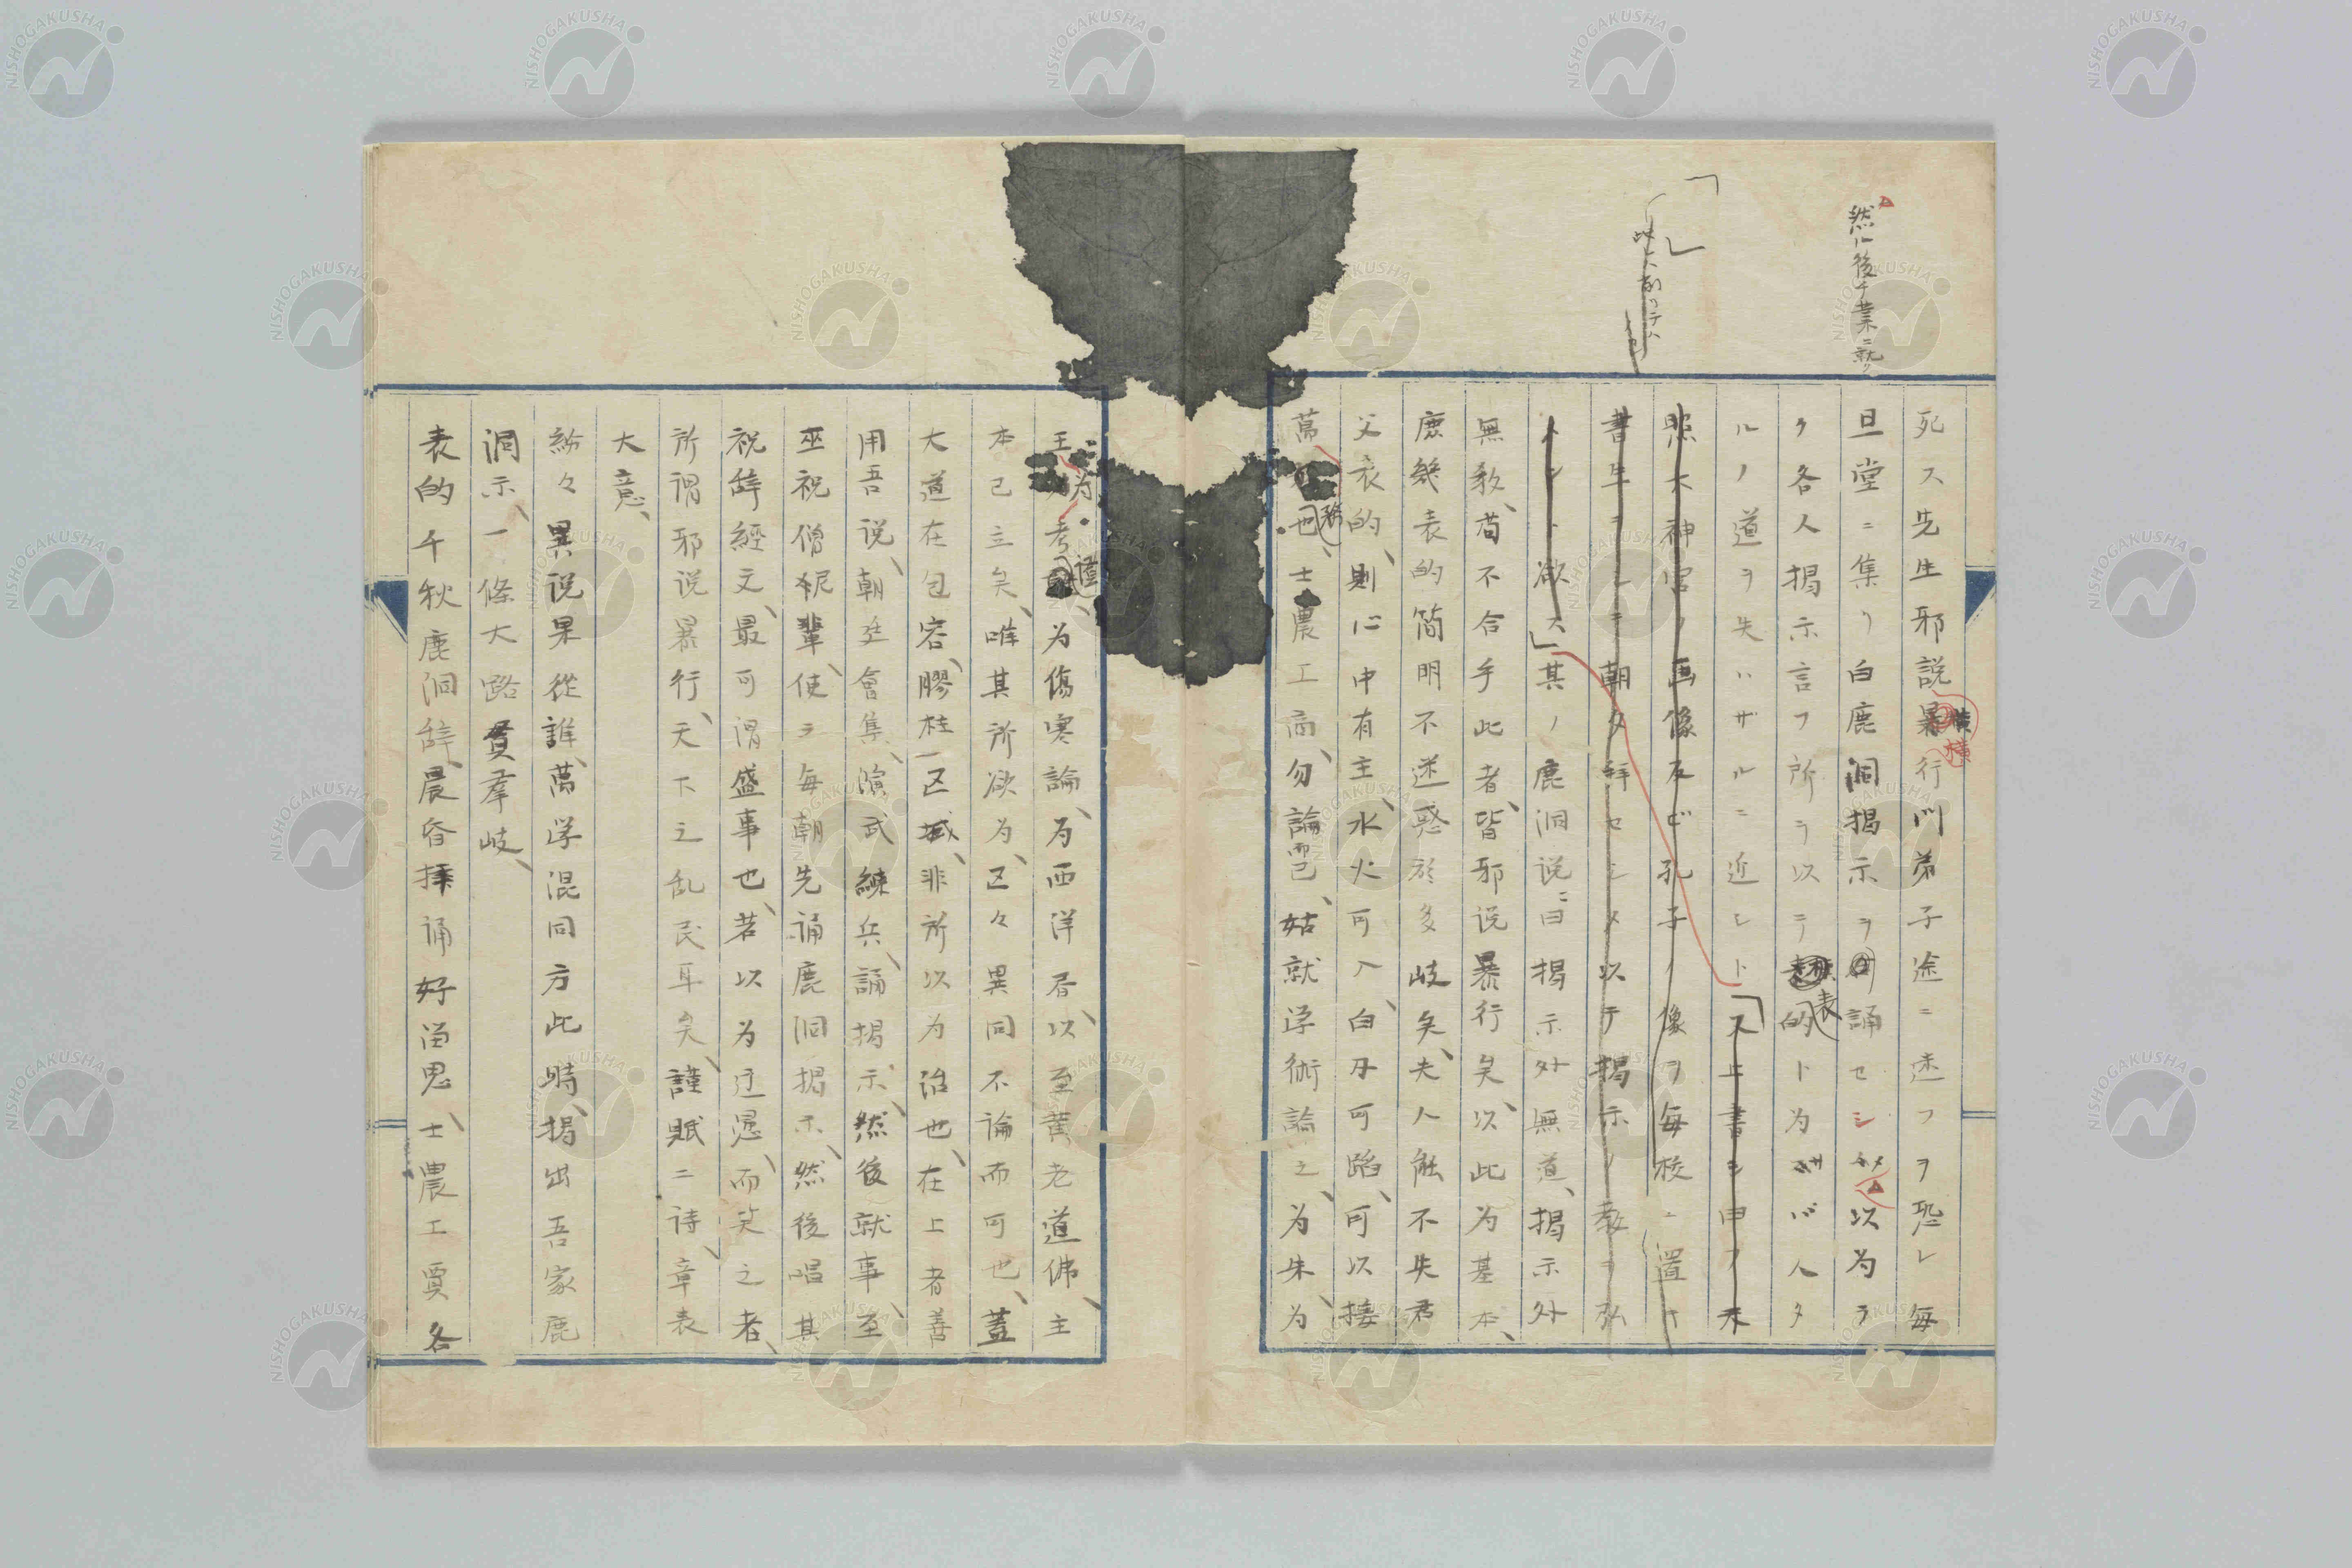 然ル後チ業ニ就ク
死ス先生邪説横行門弟子途ニ迷フヲ恐レ毎
旦堂ニ集リ白鹿洞掲示ヲ誦セシメ以為ラ
ク各人掲示言フ所ヲ以テ表的ト为サバ人タ
ルノ道ヲ失ハザルニ近シト又上書シ申フ天
照大神宮ノ画像及ビ孔子ノ像ヲ毎校ニ置キ
書生ヲシテ朝夕拝セシメ以テ掲示ノ教ヲ弘
メント欲ス其ノ鹿洞説ニ曰掲示外無道、掲示外
無敎、苟不合乎此者、皆邪说暴行矣、以此为基本、
庶幾表的簡明不迷惑於多岐矣、夫人能不失君
父表的、則仁中有主、水火可入、白刃可蹈、可以接
萬務也、士農工商、勿論而已、姑就学術論之、为朱、为
王、为考證、为傷寒論、为西洋唇、以至黄老道佛、主
本已立矣、唯其所欲为、区々異同不論而可也、蓋
大道在包容、膠柱一区域、非所以为治也、在上者善
用吾说、朝廷會集、隊武練兵、誦掲示、然後就事、至
巫祝僧尼輩、使ヲ毎朝先誦鹿洞掲示、然後唱其
祝辞經文、最可謂盛事也、若以为迂愚、而笑之者、
所謂邪说暴行、天下之乱民耳矣、謹賦二詩章表
大意、
紛々異说果從誰、萬学混同方此時、掲出吾家鹿
洞示、一條大路貫羣岐、
表的千秋鹿洞辞、晨昏捧誦好淄思、士農工賈各
NISHOGAKUSHA